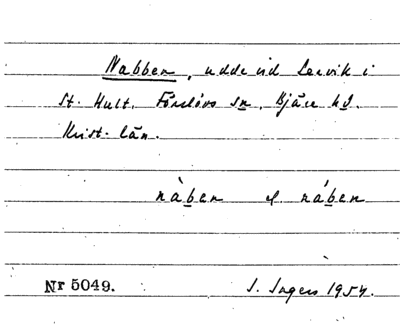 Nabben, udde vid Lervik i
St. Hult, Förslövs sn, Bjäre hd.
Krist. län.
nàben el. náben
Nr 5049. S. Ingers 1954.